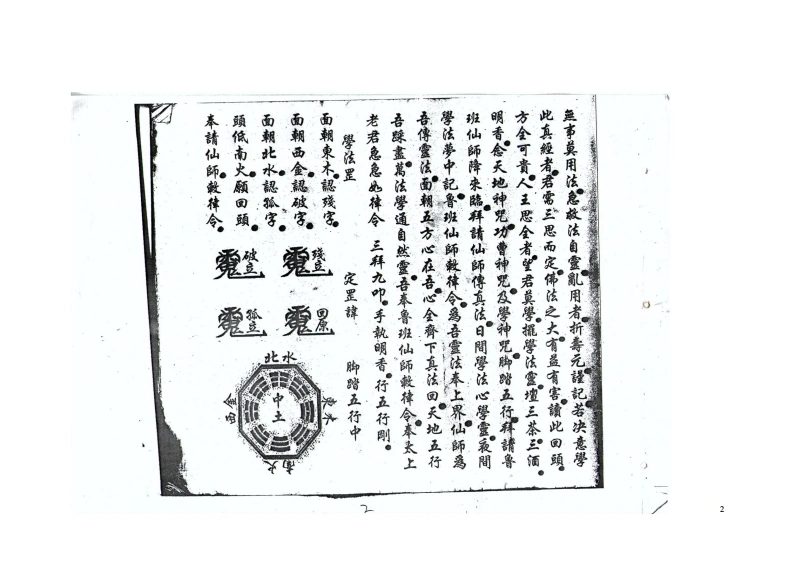 無事莫用法急救法自靈亂用者折壽元謹記若决意學
此真經者君需三思而定佛法之大有益有害讀此回頭
方全可貴人王思全者望君莫學擺學法靈壇三茶三酒
明香念天地神咒功曹神咒及學神咒脚踏五行拜請魯
班仙師降來臨拜請仙師傳真法日間學法心學靈夜間
學法夢中記魯班仙師敕律令爲吾靈法奉上界仙師爲
吾傳靈法面朝五方心在吾心全齊下真法回天地五行
吾踩盡萬法學通自然靈吾奉魯班仙師敕律令奉太上
老君急急如律令 三拜九叩手執明香行五行剛
學法罡 定罡諱 脚踏五行中
面朝東木認殘字
面朝西金認破字
面朝北水認孤字
頭低南火願回頭
奉請仙師敕律令
殘立
破立
回原
孤立
北水
東木
中土
西金
南火
2
2